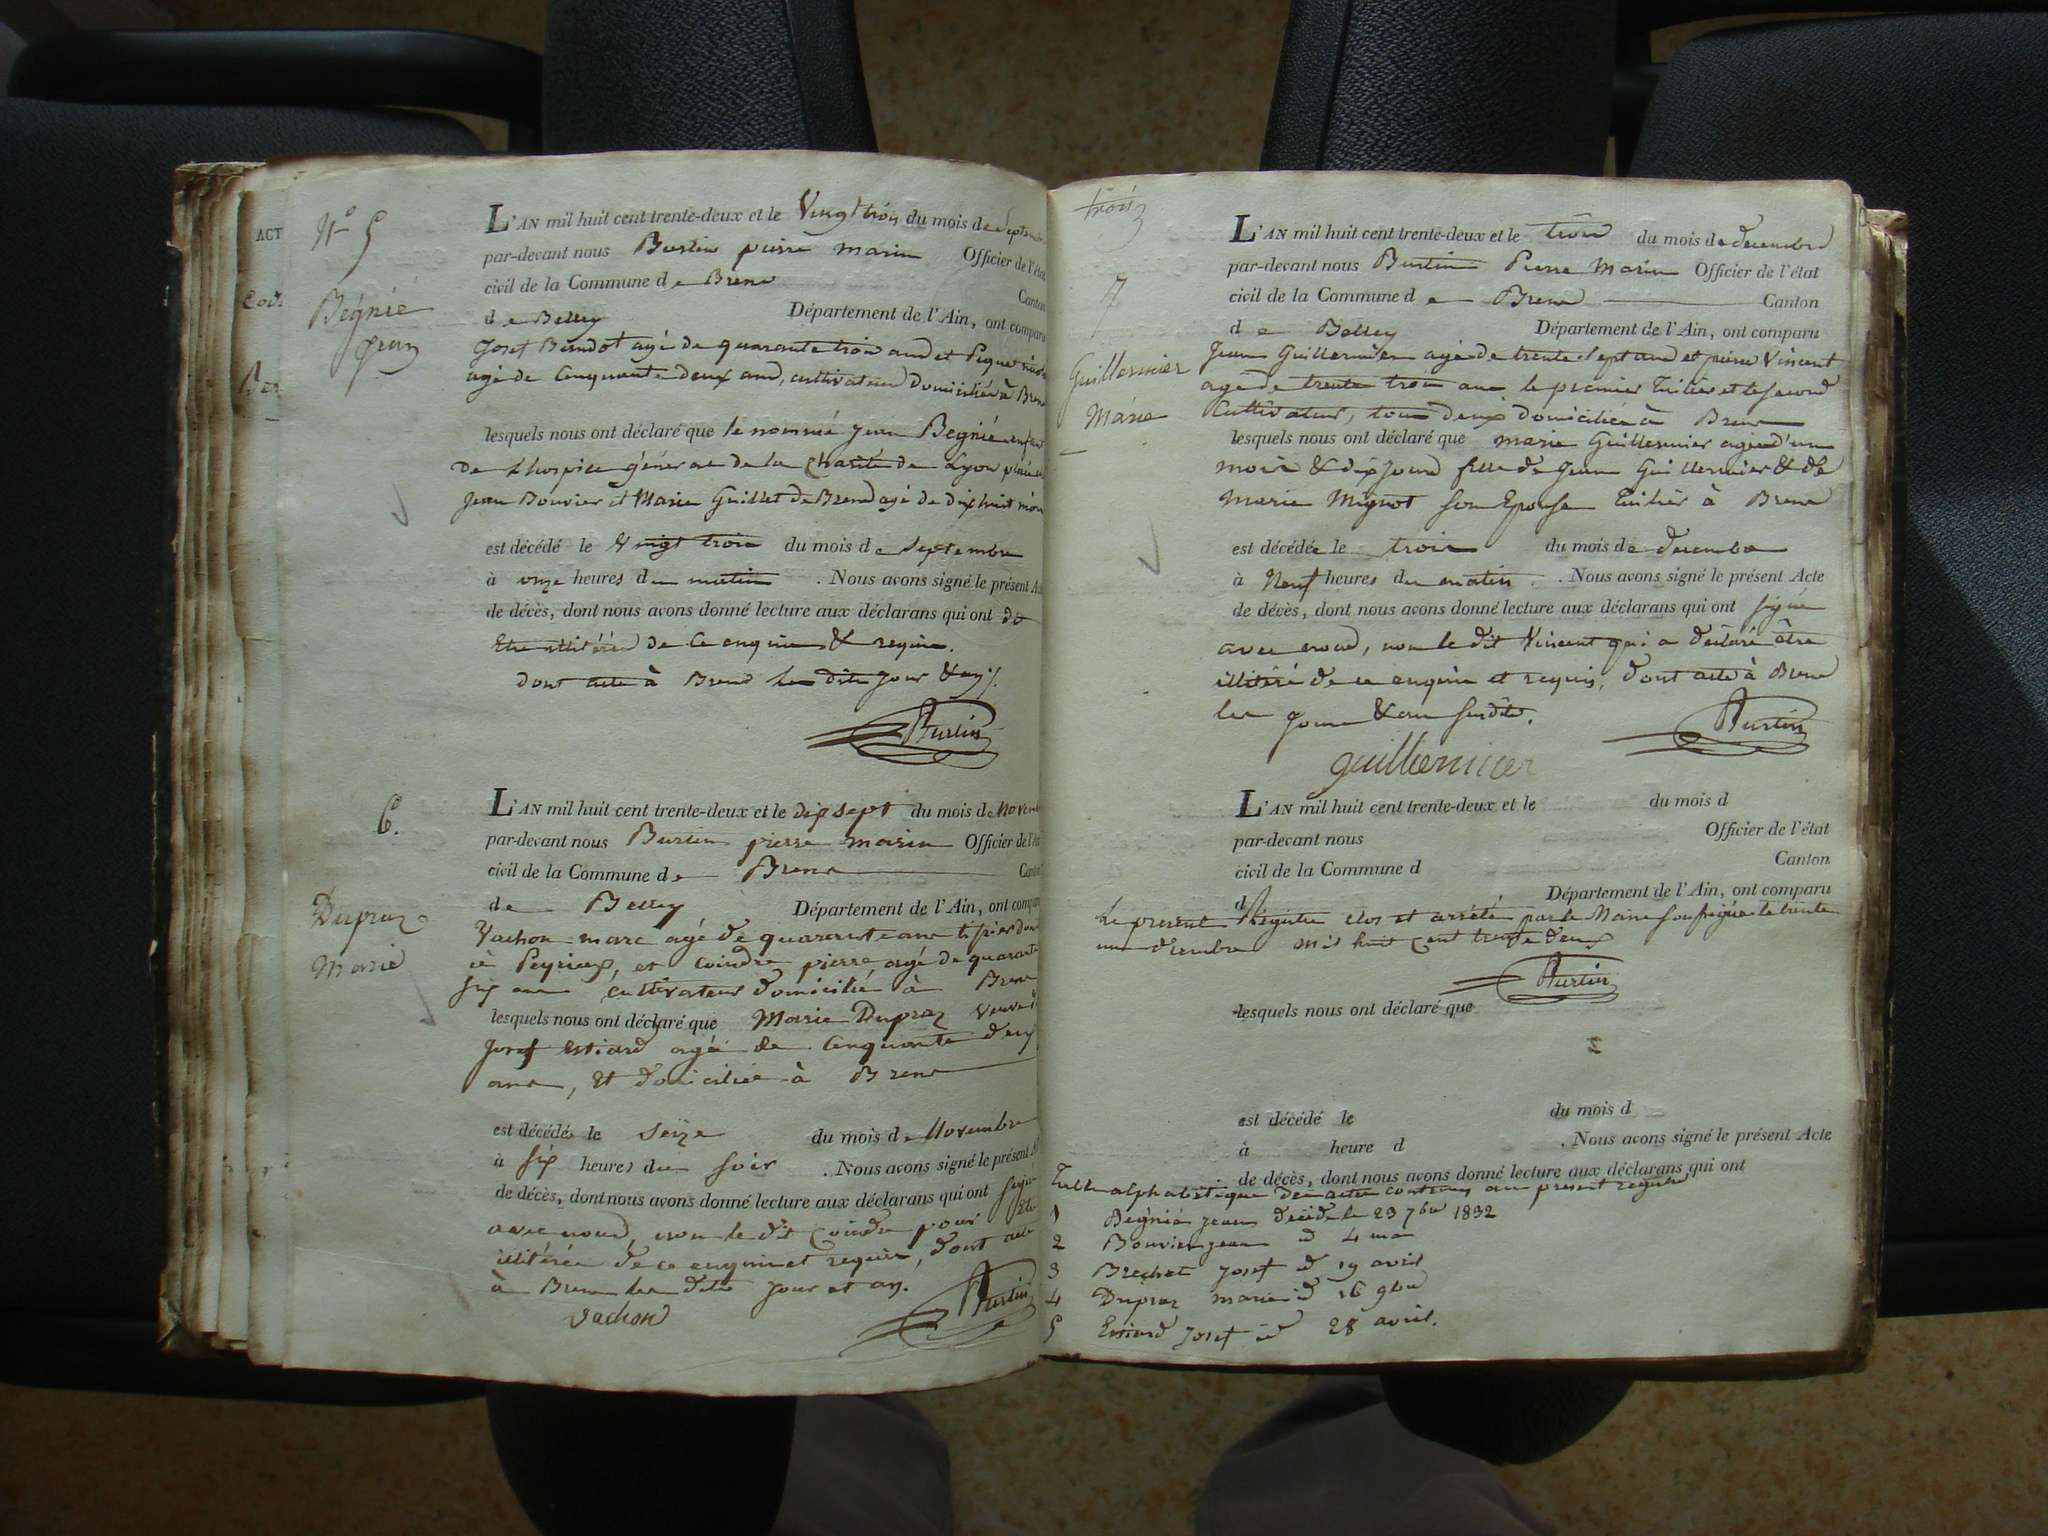 ACT
N° 5
Begnié
Jean
L'AN mil huit cent trente-deux et le Vingt trois du mois de Septembre
par-devant nous Burtin pierre marin Officier de l'état
civil de la Commune de Brens Canton
de Belley Département de l'Ain, ont comparu
Josef Bendot agé de quarante trois ans et Piquet
agé de Cinquante deux ans, cultivateurs domiciliés à Brens
lesquels nous ont déclaré que le nommé jean Begnié enfant
de L'hospice général de la charité de Lyon placé
Jean Bouvier et Marie Guillet de Brens agé de dix huit mois
est décédé le Vingt trois du mois de Septembre
à onze heures du matin . Nous avons signé le présent Acte
de décès, dont nous avons donné lecture aux déclarans qui ont dit
Etre illitérés de ce enquis & requis.
dont acte à Brens les dits jour & an
Burtin
6.
Dupraz
Marie
L'AN mil huit cent trente-deux et le dix sept du mois de Novembre
par-devant nous Burtin pierre marin Officier de l'état
civil de la Commune de Brens Canton
de Belley Département de l'Ain, ont comparu
Vachon marc agé de quarante ans
à Peyrieux, et Coindre pierre agé de quarante
six ans cultivateur domicilié à Brens
lesquels nous ont déclaré que Marie Dupraz veuve d
Josef Estiard agée de Cinquante deux
ans, et domiciliée à Brens
est décédée le Seize du mois de Novembre
à six heures du soir . Nous avons signé le présent
de décès, dont nous avons donné lecture aux déclarans qui ont signé
avec nous, non le dit Coindre pour Etre
illitéré de ce enquis et requis, dont acte
à Brens les dits jour et an.
Vachon
Burtin
trois
7
Guillermier
Marie
L'AN mil huit cent trente-deux et le trois du mois de decembre
par-devant nous Burtin Pierre Marin Officier de l'état
civil de la Commune de Brens Canton
de Belley Département de l'Ain, ont comparu
Jean Guillermier agé de trente sept ans et pierre Vincent
agé de trente trois ans le premier Tuilier et le second
Cultivateur, tous deux domiciliés à Brens
lesquels nous ont déclaré que marie Guillermier agée d'un
mois & dix jours fille de Jean Guillermier & de
Marie Mignot son Epouse Tuilier à Brens
est décédée le trois du mois de decembre
à Neuf heures du matin . Nous avons signé le présent Acte
de décès, dont nous avons donné lecture aux déclarans qui ont signé
avec nous, non le dit Vincent qui a déclaré être
illitéré de ce enquis et requis, dont acte à Brens
les Jour & an susdits.
Burtin
guillermier
L'AN mil huit cent trente-deux et le du mois d
par-devant nous Officier de l'état
civil de la Commune d Canton
d Département de l'Ain, ont comparu
Le present Régistre clos et arrété par le Maire soussigné le trente
un décembre mil huit cent trente deux
Burtin
lesquels nous ont déclaré que
est décédé le du mois d
à heure d . Nous avons signé le présent Acte
de décès, dont nous avons donné lecture aux déclarans qui ont
Table alphabétique des actes contenus au present registre
1 Begnié jean décédé le 23 7bre 1832
2 Bouvier jean id 4 mai
3 Brechet Josef id 19 avril
4 Dupraz marie id 16 9bre
5 Estiard Josef id 28 avril.